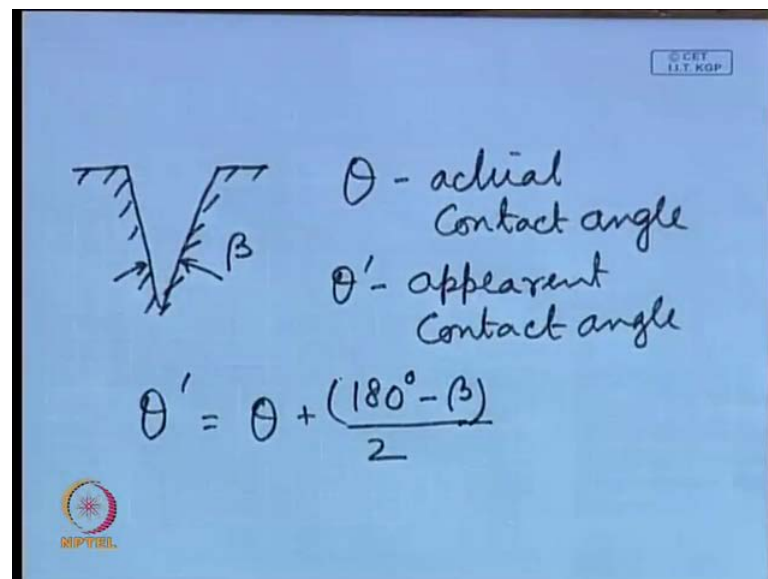 © CET
I.I.T. KGP
θ - actual
Contact angle
β
θ' - appearent
Contact angle
θ' = θ + (180° - β) / 2
NPTEL